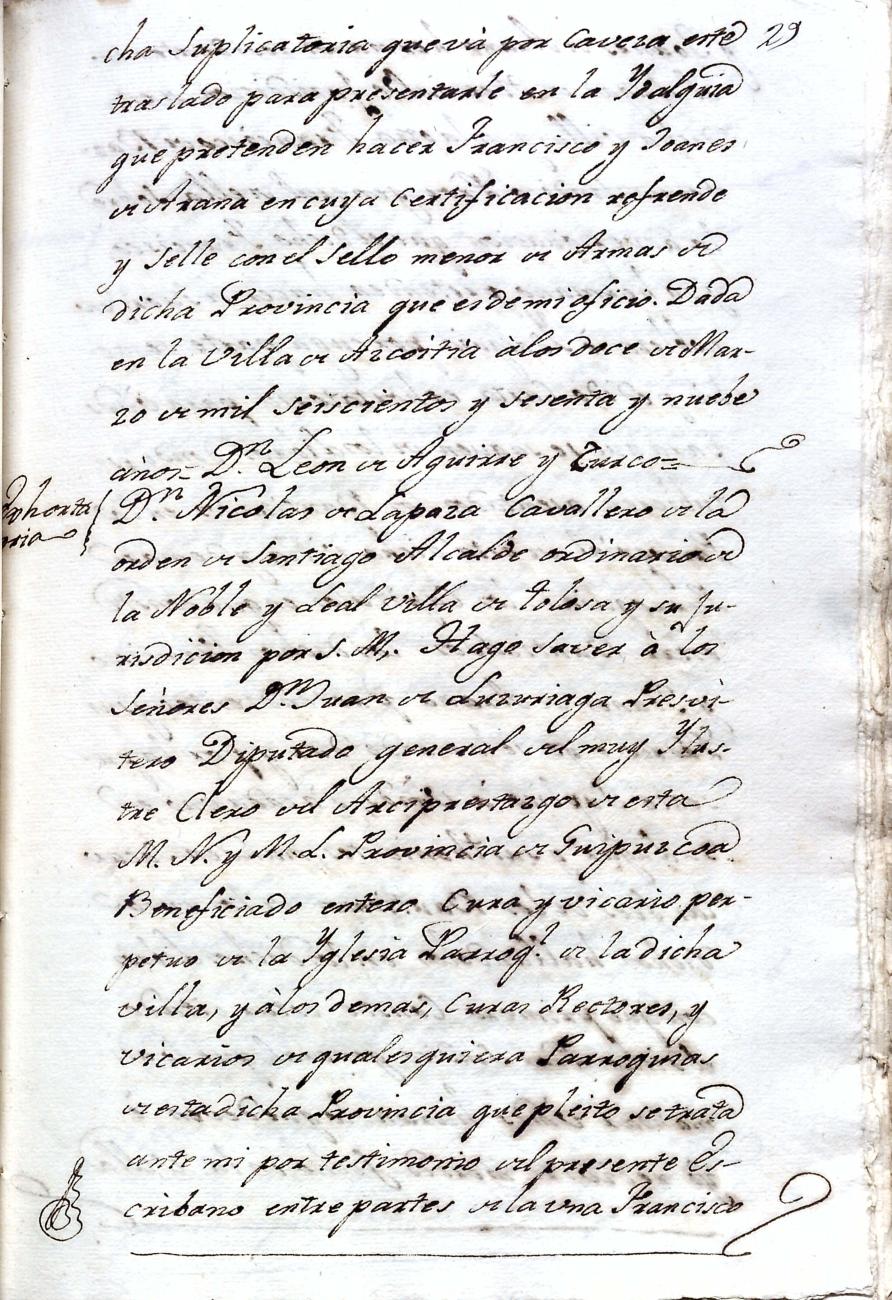 29
cha Suplicatoria que và por Cavera este
traslado para presentarle en la Ydalguia
que pretenden hacer Francisco y Joanes
de Arana en cuya Certificacion refrende
y Selle con el Sello menor de Armas de
dicha Provincia que es de mi oficio. Dada
en la Villa de Arcoitia à los doce de Mar-
zo de mil seiscientos y sesenta y nuebe
años = Dn. Leon de Aguirre y Zurco =
Dn. Nicolas de Lapaza Cavallero de la
orden de Santiago Alcalde ordinario de
la Noble y Leal Villa de Tolosa y su Ju-
risdicion por S. M. Hago saver à los
Señores Dn. Juan de Luzuriaga Presvi-
tero Diputado general del muy Ylus-
tre Clero del Arciprestazgo de esta
M. N. y M. L. Provincia de Guipuzcoa
Beneficiado entero Cura y vicario per-
petuo de la Yglesia Parroql. de la dicha
villa, y à los demas, Curas Rectores, y
vicarios de qualesquiera Parroquias
de esta dicha Provincia que pleito se trata
ante mi por testimonio del presente Es-
cribano entre partes de la una Francisco